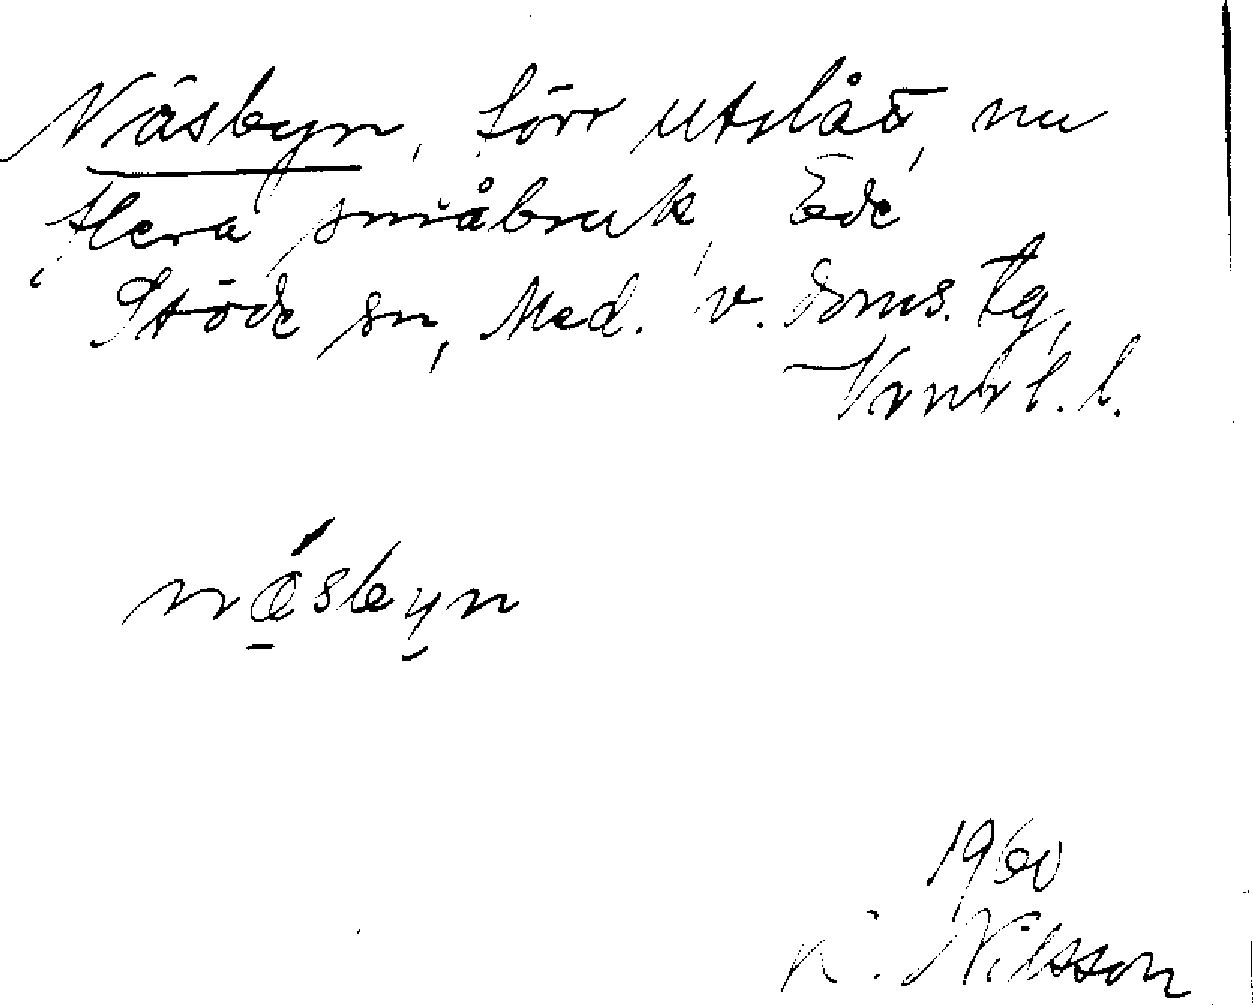 Näsbyn, förr utslått, nu
flera småbruk, Ede,
Stöde sn, Med. v. doms. tg,
Vrnrl. l.
näsbyn
1960
K. Nilsson